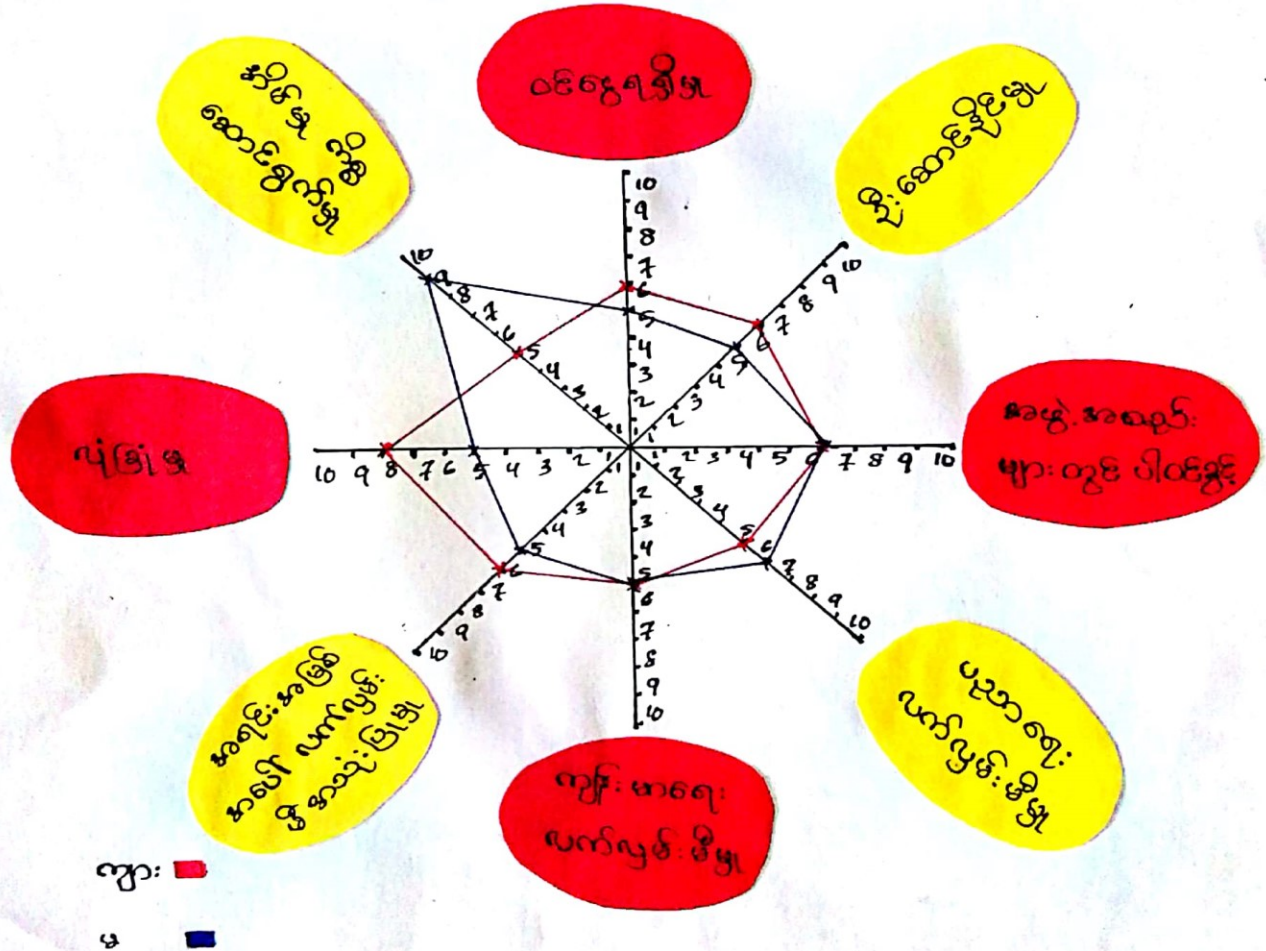 ဝင်ငွေရရှိမှု
ဦးဆောင်နိုင်မှု
အဖွဲ့အစည်း
များတွင် ပါဝင်ခွင့်
ပညာရေး
လက်လှမ်းမီမှု
ကျန်းမာရေး
လက်လှမ်းမီမှု
အရင်းအမြစ်
အပေါ် လက်လှမ်း
မီ အသုံးပြုမှု
လုံခြုံမှု
အိမ်မှု ကိစ္စ
ဆောင်ရွက်မှု
10
9
8
7
6
5
4
3
2
1
1
2
3
4
5
6
7
8
9
10
1 2 3 4 5 6 7 8 9 10
2
3
4
5
6
7
8
9
10
1
2
3
4
5
6
7
8
9
10
1
2
3
4
5
6
7
8
9
10
10 9 8 7 6 5 4 3 2 1
10
9
8
7
6
5
4
3
2
1
ကျား
မ